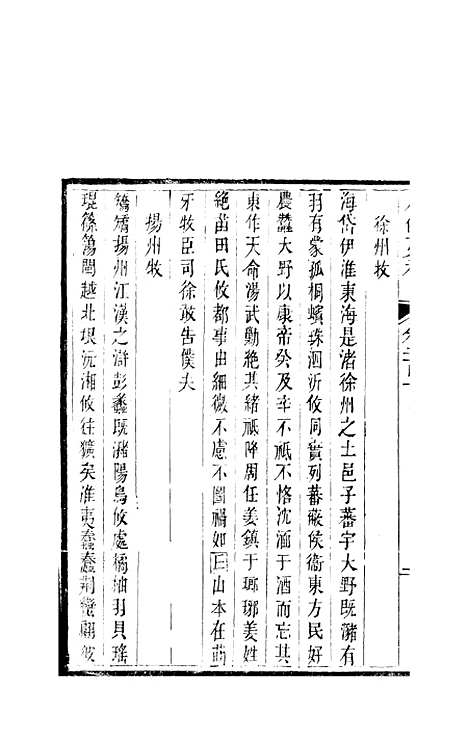 徐州牧
海岱伊淮東海是渚徐州之土邑子蕃宇大野既瀦有
羽有蒙孤桐蠙珠泗沂攸同實列蕃蔽侯衞東方民好
農蠶大野以康帝癸及辛不祗不恪沈湎于酒而忘其
東作天命湯武勦絶其緒祗降周任姜鎮于瑯琊姜姓
絶苗田氏攸都事由細微不慮不圖禍如曰山本在萌
牙牧臣司徐敢告僕夫
揚州牧
矯矯揚州江漢之滸彭蠡既瀦陽鳥攸處橘柚羽貝瑤
琨篠簜閩越北垠沅湘攸往獷矣淮夷蠢蠢荆蠻翩彼